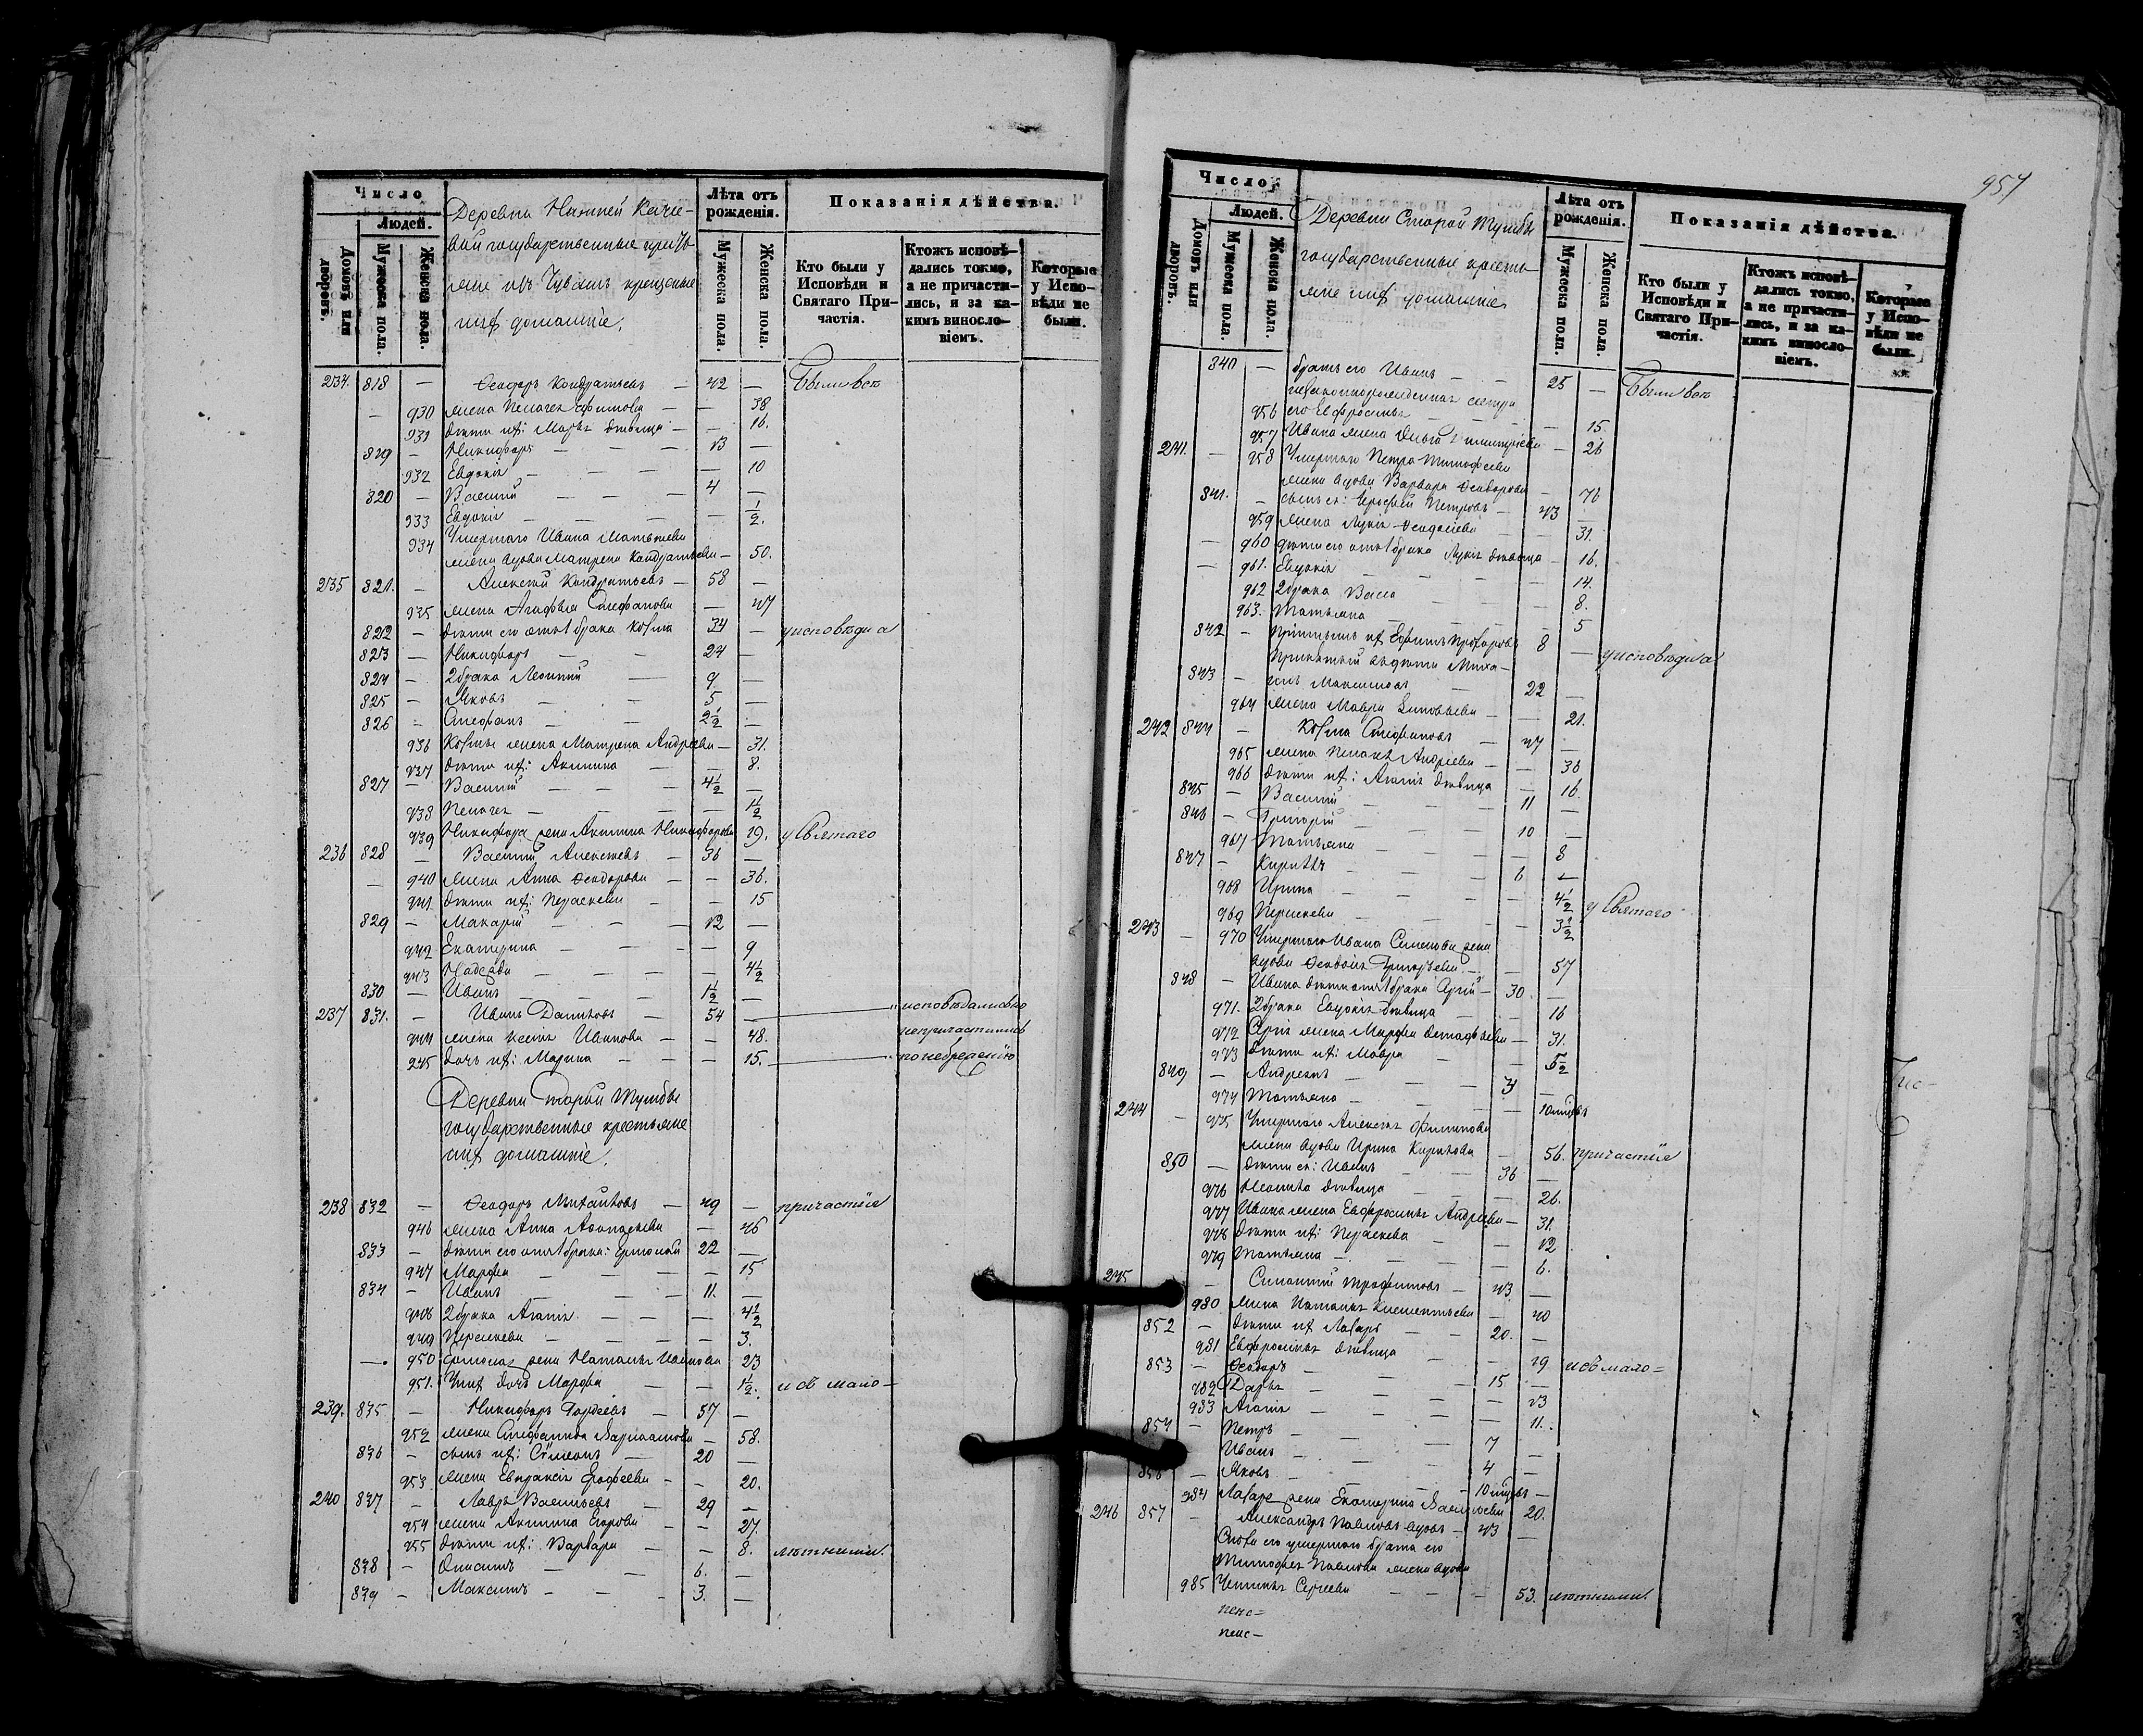 Число
Людей.
Домовъ или дворовъ.
Мужеска пола.
Женска пола.
Деревни Нижней Каче-
вой государственные крестья-
не изъ Чувашъ крещеные
ихъ домашніе.
Лѣта отъ рожденія.
Мужеска пола.
Женска пола.
Показанія дѣйства.
Кто были у Исповѣди и Святаго Причастія.
Ктожъ исповѣдались токмо, а не причастились, и за какимъ винословіемъ.
Которые у Исповѣди не были.
234. 818 — Ѳеодоръ Кондратьевъ — 42 — Были всѣ
— 930 жена Пелагея Ефимова — — 38
931 дѣти ихъ: Марья дѣвица — — 16.
819 — Никифоръ — 13 —
932 Евдокія — — 10
820 — Василій — 4 —
933 Евдокія — — 1/2.
934 Умершаго Ивана Матвѣева
жена вдова Матрена Кондратьева — 50.
235 821. — Алексѣй Кондратьевъ — 58 —
935 жена Агафья Стефанова — 47
822 — дѣти его отъ 1 брака Козма 34 — у исповѣди и
823 — Никифоръ — 24 —
824 — 2 брака Леонтій — 9 —
825 — Яковъ — 5 —
826 — Стефанъ — 2 1/2 —
936 Козмы жена Матрена Андреева — 31.
937 дѣти ихъ: Акилина — — 8.
827 — Василій — 4 1/2 —
938 Пелагея — — 1 1/2
939 Никифора жена Акилина Никифорова 19. у Святаго
236 828 — Василій Алексѣевъ — 36 —
— 940 жена Анна Ѳеодорова — — 36.
941 дѣти ихъ: Параскева — — 15
829 — Макарій — 12 —
942 Екатерина — — 9
943 Надежда — — 4 1/2
830 — Иванъ — 1 1/2 —
237 831. — Иванъ Даниловъ — 54 — исповѣдались но
944 жена Ксенія Иванова — — 48. непричастились
945 дочь ихъ: Марина — — 15. по небреженію
Деревни Старой Тумбы
государственные крестьяне
ихъ домашніе.
238 832 — Ѳеодоръ Михайловъ — 49 — причастія
946 жена Анна — 46
833 — дѣти его отъ 1 брака: Ермолай 22 —
947 Марфа — — 15
834 — Иванъ — 11. —
948 2 брака Агапія — — 4 1/2
949 Параскева — — 3.
—. 950 Ермолая жена Наталья Иванова 23
951. Ихъ дочь Марфа — — 1 1/2. и съ мало=
239. 835 — Никифоръ Гордеевъ — 57 —
952 жена Стефанида Варламова — 58.
836 — сынъ ихъ: Симеонъ — 20 —
953 жена Евпраксія Ерофеева — — 20.
240 837 — Лавръ Васильевъ — 29 —
954 жена Акилина Егорова — — 27.
955 дѣти ихъ: Варвара — — 8. лѣтними.
838 — Онисимъ — 6. —
839 — Максимъ — 3. —
957
Число
Людей.
Домовъ или дворовъ.
Мужеска пола.
Женска пола.
Деревни Старой Тумбы
государственные крестья-
не ихъ домашніе
Лѣта отъ рожденія.
Мужеска пола.
Женска пола.
Показанія дѣйства.
Кто были у Исповѣди и Святаго Причастія.
Ктожъ исповѣдались токмо, а не причастились, и за какимъ винословіемъ.
Которые у Исповѣди не были.
340 — братъ его Иванъ — 25 — Были всѣ
незаконнорожденная сестра
956 его Евфросинья — — 15.
957 Ивана жена Ольга — 26
241. — 958 Умершаго Петра Тимофеева
жена вдова Варвара Ѳеодорова — 76
841. — сынъ ея: Ерофей Петровъ — 43 —
959 жена Лукія Ѳеодосіева — 31.
— 960 дѣти его отъ 1 брака Лукія дѣвица — 16.
— 961. Евдокія — 14.
962 2 брака Васса — 8.
963. Татьяна — 5
842 — Пріемышъ ихъ Ефимъ Прохоровъ 8 — у исповѣди и
Принятый въ дѣти Миха-
843 — илъ Максимовъ — 22 —
964 жена Мавра Зиновьева — — 21.
242 844 — Козма Стефановъ — 47 —
965 жена Пелагея Андреева — — 36
966 дѣти ихъ: Агапія дѣвица — 16.
845 — Василій — 11 —
846 — Григорій — 10 —
967 Татьяна — — 8
847 — Кириллъ — 6 —
968 Ирина — — 4 1/2
969 Параскева — — 3 1/2 у Святаго
243 — 970 Умершаго Ивана Семенова жена
вдова Григорьева — — 57
848 — Ивана дѣти отъ 1 брака Сергій — 30 —
971. 2 брака Евдокія дѣвица — 16
972 Сергія жена Марфа — 31.
973 дѣти ихъ: Мавра — — 5 1/2
849 — Андреянъ — 3 —
974 Татьяна — — 10 мѣсяцевъ
244 — 975 Умершаго Алексѣя Филиппова
жена вдова Ирина Кирилова — 56. причастія
850 — дѣти ея: Иванъ — 36 —
976 Неонила дѣвица — 26.
977 Ивана жена Евфросинья Андреева — 31.
978 дѣти ихъ: Параскева — — 12
979 Татьяна — — 6.
245 — Силантій Трофимовъ — 43 —
980 жена Наталья Климентьева — 40
852 — дѣти ихъ Лазарь — 20. —
981 Евфросинья дѣвица — 19 и съ мало=
853 — Ѳеодоръ — 15 —
982 Дарья — — 13
983 Агапія — — 11.
854 — Петръ — 7
Иванъ — 4 —
856 — Яковъ — 10 мѣсяцевъ —
984 Лазаря жена Екатерина Васильева 20.
246 857 — Александръ Павловъ вдовъ — 43 —
Сноха его умершаго брата его
Тимофея Павлова жена вдова
985 Устинья Сергеева — — 53. лѣтними.